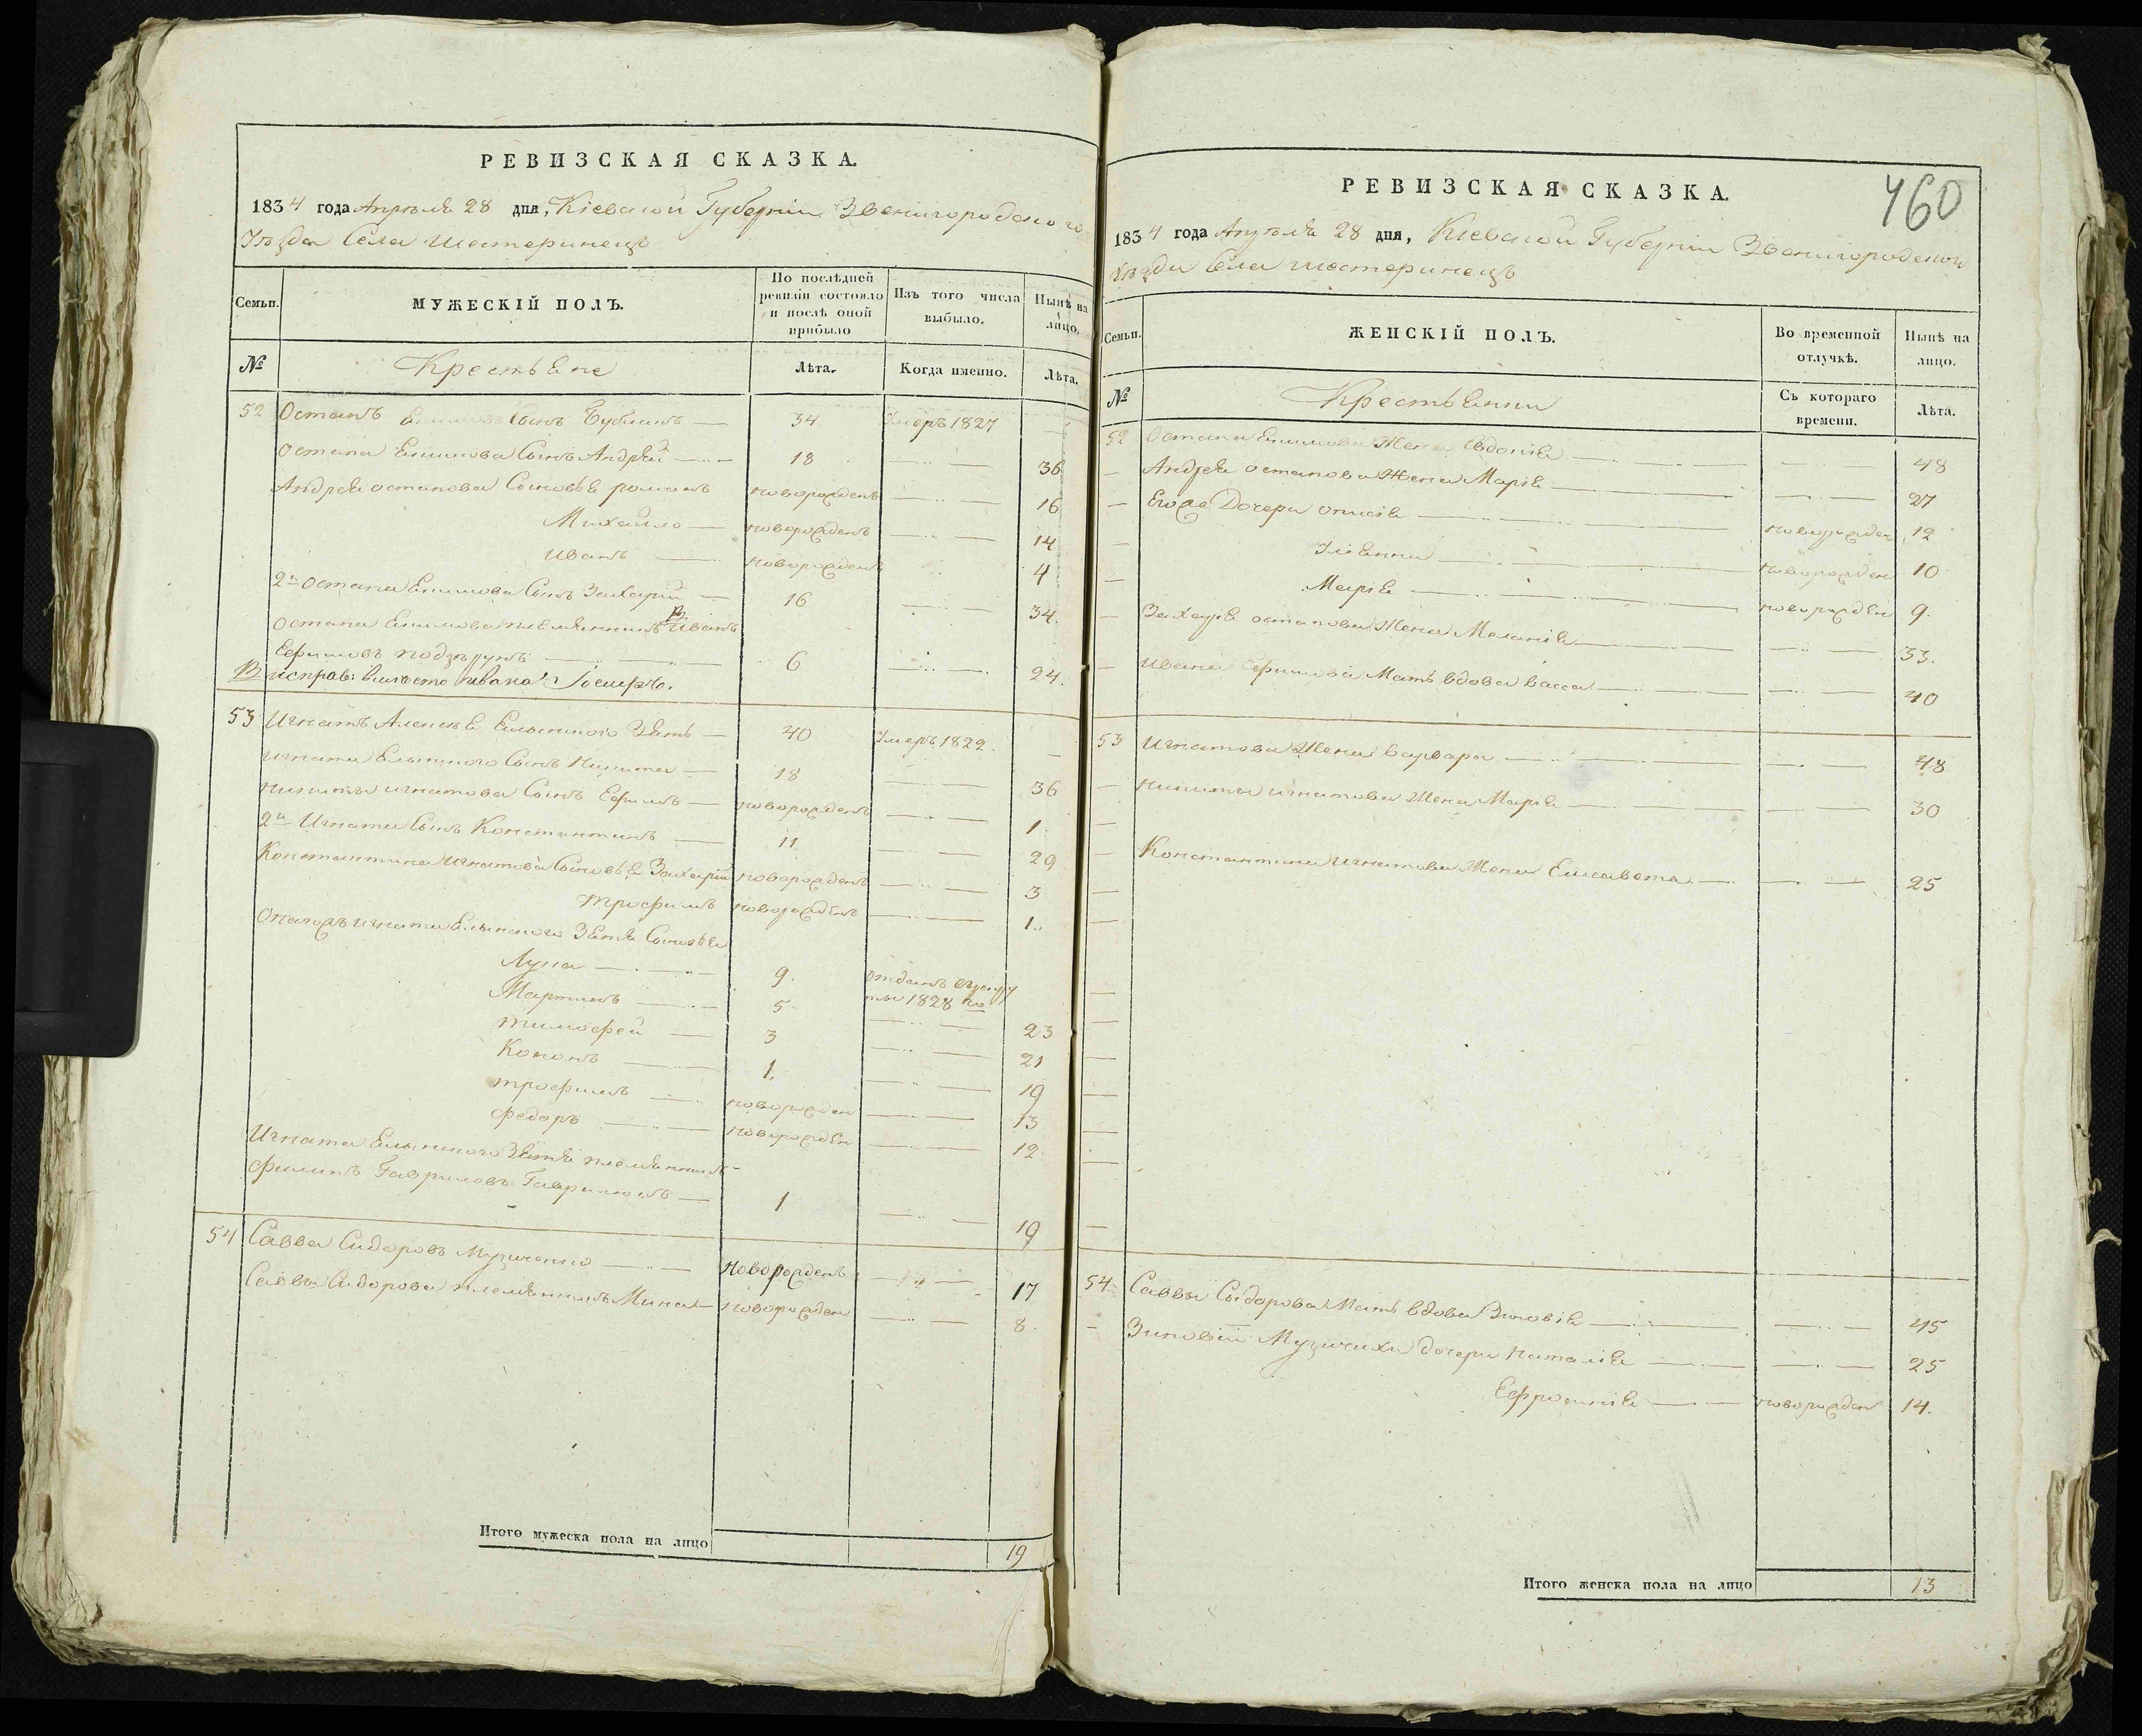 РЕВИЗСКАЯ СКАЗКА.
1834 года Апрѣля 28 дня, Кіевской Губерніи Звенигородского
Уѣзда Села Шестеринецъ
Семьи.
МУЖЕСКІЙ ПОЛЪ.
По послѣдней ревизіи состояло и послѣ оной прибыло
Изъ того числа выбыло.
Нынѣ на лицо.
№
Крестьяне
Лѣта.
Когда именно.
Лѣта.
52 Остапъ Сынъ Бубликъ — 34 Умеръ 1827 —
Остапа Сынъ Андрей — 18 — 36
Андрея остапова Сыновья романъ новорожденъ — 16
Михайло — новорожденъ — 14
иванъ — новорожденъ 4
2й Остапа Сынъ Захарій — 16 — 34.
Остапа племянникъ иванъ
Ефимовъ — 6 — 24.
исправ: вмѣсто ивана
53 Игнатъ Зять — 40 Умеръ 1829. —
Игната Сынъ Никита — 18 — 36
Никиты игнатова Сынъ Ефимъ — новорожденъ — 1
2й Игната Сынъ Константинъ — 11 — 29
Константина игнатова Сыновья Захарій новорожденъ — 3
трофимъ новорожденъ — 1.
игната Зятя Сыновья
Лука — 9. отданъ въ
1828 го
Мартинъ — 5 — 23
тимофей — 3 — 21
Кононъ — 1. — 19
трофимъ — новорожден — 13
федоръ — новорожден — 12
Игната Зятя племянникъ
филипъ Гавриловъ — 1 — 19
54 Савва Сидоровъ Музиченко — новорожденъ — 17
Саввы Сидорова племянникъ Мина — новорожден — 8.
Итого мужеска пола на лицо 19
460
РЕВИЗСКАЯ СКАЗКА.
1834 года Апрѣля 28 дня, Кіевской Губерніи Звенигородского
Уѣзда Села Шестеринецъ
Семьи.
ЖЕНСКІЙ ПОЛЪ.
Во временной отлучкѣ.
Нынѣ на лицо.
№
Крестьянки
Съ котораго времени.
Лѣта.
52 Остапа Жена Евдокія — 48
— Андрея остапова Жена Марія — 27
— Его же Дочери — новорожден 12
— Уліянна — новорожден 10
— Марія — новорожден 9.
— Захарія остапова Жена Меланія — 33.
— ивана Ефимова Мать вдова васса — 40
53 Игнатова Жена варвара — 48
— Никиты игнатова Жена Марія — 30
— Константина игнатова Жена Елисавета — 25
54 Саввы Сидорова Мать вдова Зиновія — 45
— Зиновіи Музичихи дочери Наталія — 25
Ефросинія — новорожден 14.
Итого женска пола на лицо 13